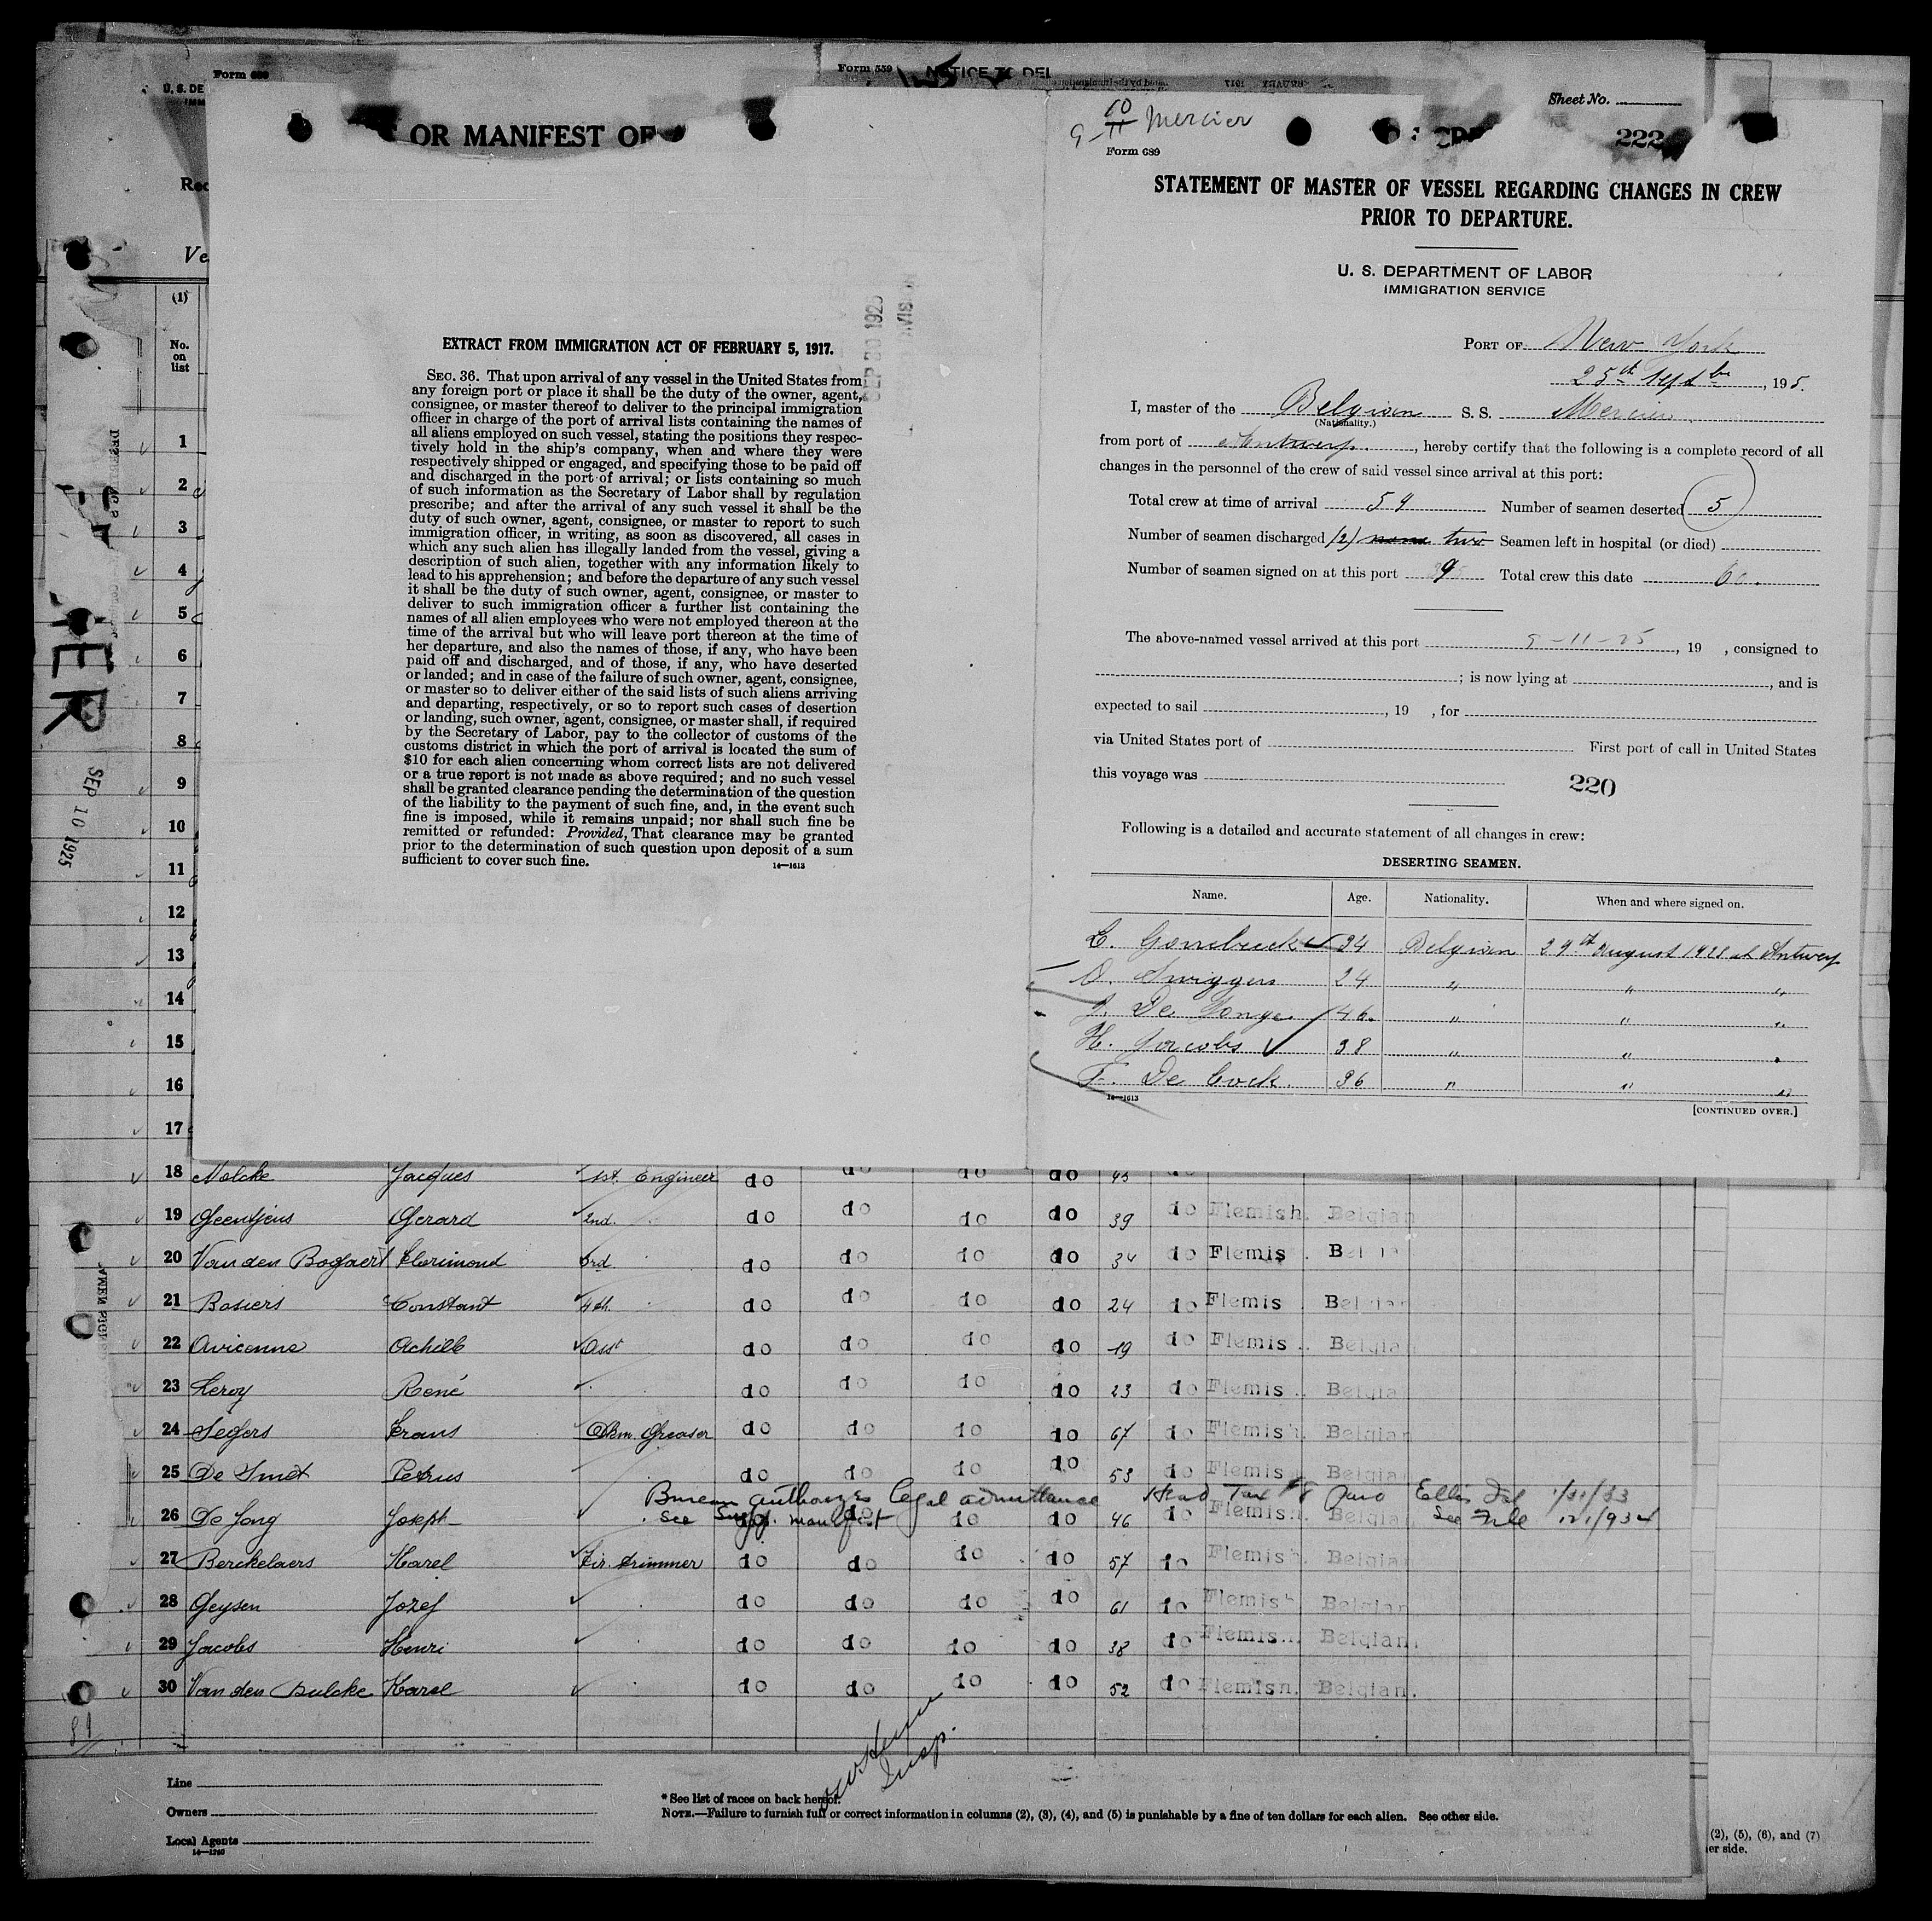 Form 689
Form 559
NOTICE TO DEL
U. S. DE
Sheet No.
OR MANIFEST OF
222
Ve
(1)
No.
on
list
SEP 10 1925
EXTRACT FROM IMMIGRATION ACT OF FEBRUARY 5, 1917.
SEC. 36. That upon arrival of any vessel in the United States from
any foreign port or place it shall be the duty of the owner, agent,
consignee, or master thereof to deliver to the principal immigration
officer in charge of the port of arrival lists containing the names of
all aliens employed on such vessel, stating the positions they respec-
tively hold in the ship's company, when and where they were
respectively shipped or engaged, and specifying those to be paid off
and discharged in the port of arrival; or lists containing so much
of such information as the Secretary of Labor shall by regulation
prescribe; and after the arrival of any such vessel it shall be the
duty of such owner, agent, consignee, or master to report to such
immigration officer, in writing, as soon as discovered, all cases in
which any such alien has illegally landed from the vessel, giving a
description of such alien, together with any information likely to
lead to his apprehension; and before the departure of any such vessel
it shall be the duty of such owner, agent, consignee, or master to
deliver to such immigration officer a further list containing the
names of all alien employees who were not employed thereon at the
time of the arrival but who will leave port thereon at the time of
her departure, and also the names of those, if any, who have been
paid off and discharged, and of those, if any, who have deserted
or landed; and in case of the failure of such owner, agent, consignee,
or master so to deliver either of the said lists of such aliens arriving
and departing, respectively, or so to report such cases of desertion
or landing, such owner, agent, consignee, or master shall, if required
by the Secretary of Labor, pay to the collector of customs of the
customs district in which the port of arrival is located the sum of
$10 for each alien concerning whom correct lists are not delivered
or a true report is not made as above required; and no such vessel
shall be granted clearance pending the determination of the question
of the liability to the payment of such fine, and, in the event such
fine is imposed, while it remains unpaid; nor shall such fine be
remitted or refunded: Provided, That clearance may be granted
prior to the determination of such question upon deposit of a sum
sufficient to cover such fine.
14—1613
Mercier
Form 689
STATEMENT OF MASTER OF VESSEL REGARDING CHANGES IN CREW
PRIOR TO DEPARTURE.
U. S. DEPARTMENT OF LABOR
IMMIGRATION SERVICE
PORT OF New York
25th Septbr, 195.
I, master of the Belgian S. S. Mercier
(Nationality.)
from port of Antwerp, hereby certify that the following is a complete record of all
changes in the personnel of the crew of said vessel since arrival at this port:
Total crew at time of arrival 59 Number of seamen deserted 5
Number of seamen discharged (2) none two Seamen left in hospital (or died)
Number of seamen signed on at this port 9 Total crew this date 60.
The above-named vessel arrived at this port 9-11-25, 19 , consigned to
; is now lying at , and is
expected to sail , 19 , for
via United States port of First port of call in United States
this voyage was
220
Following is a detailed and accurate statement of all changes in crew:
DESERTING SEAMEN.
Name. Age. Nationality. When and where signed on.
34 Belgian 29th August 1925 at Antwerp
O. Swiggers 24 " " "
J. De Jonge 46 " " "
H. Jacobs 38 " " "
F. De Cock. 36 " " "
14—1613
[CONTINUED OVER.]
1
2
3
4
5
6
7
8
9
10
11
12
13
14
15
16
17
18 Nolcke Jacques 1st. Engineer do do do do 45 do
19 Geentjens Gerard 2nd. do do do do 39 do Flemish. Belgian
20 Van den Bogaert Florimond 3rd do do do do 34 do Flemis Bel ia
21 Rosiers Constant 4th. do do do do 24 do Flemis Belgian
22 Avicenne Achille Asst do do do do 19 do Flemis Belgian
23 Leroy René do do do do 23 do Flemis Belgia
24 Segers Frans Dkm. Greaser do do do do 67 do Flemish. Belgian
25 De Smet Petrus do do do do 53 do Flemis Belgia
Bureau authorizes legal admittance Head Tax $8 Paid Ellis Isl 1/31/33
See Supp. manifest See File
26 De Jong Joseph do do do do 46 do Flemish. Belgian
27 Berckelaers Karel Fir. trimmer do do do do 57 do Flemish Belgian
28 Geysen Jozef do do do do 61 do Flemish Belgian
29 Jacobs Henri do do do do 38 do Flemish. Belgian.
30 Van den Bulcke Karel do do do do 52 do Flemish. Belgian.
Insp.
Line
Owners
Local Agents
* See list of races on back hereof.
NOTE.—Failure to furnish full or correct information in columns (2), (3), (4), and (5) is punishable by a fine of ten dollars for each alien. See other side.
(2), (5), (6), and (7)
er side.